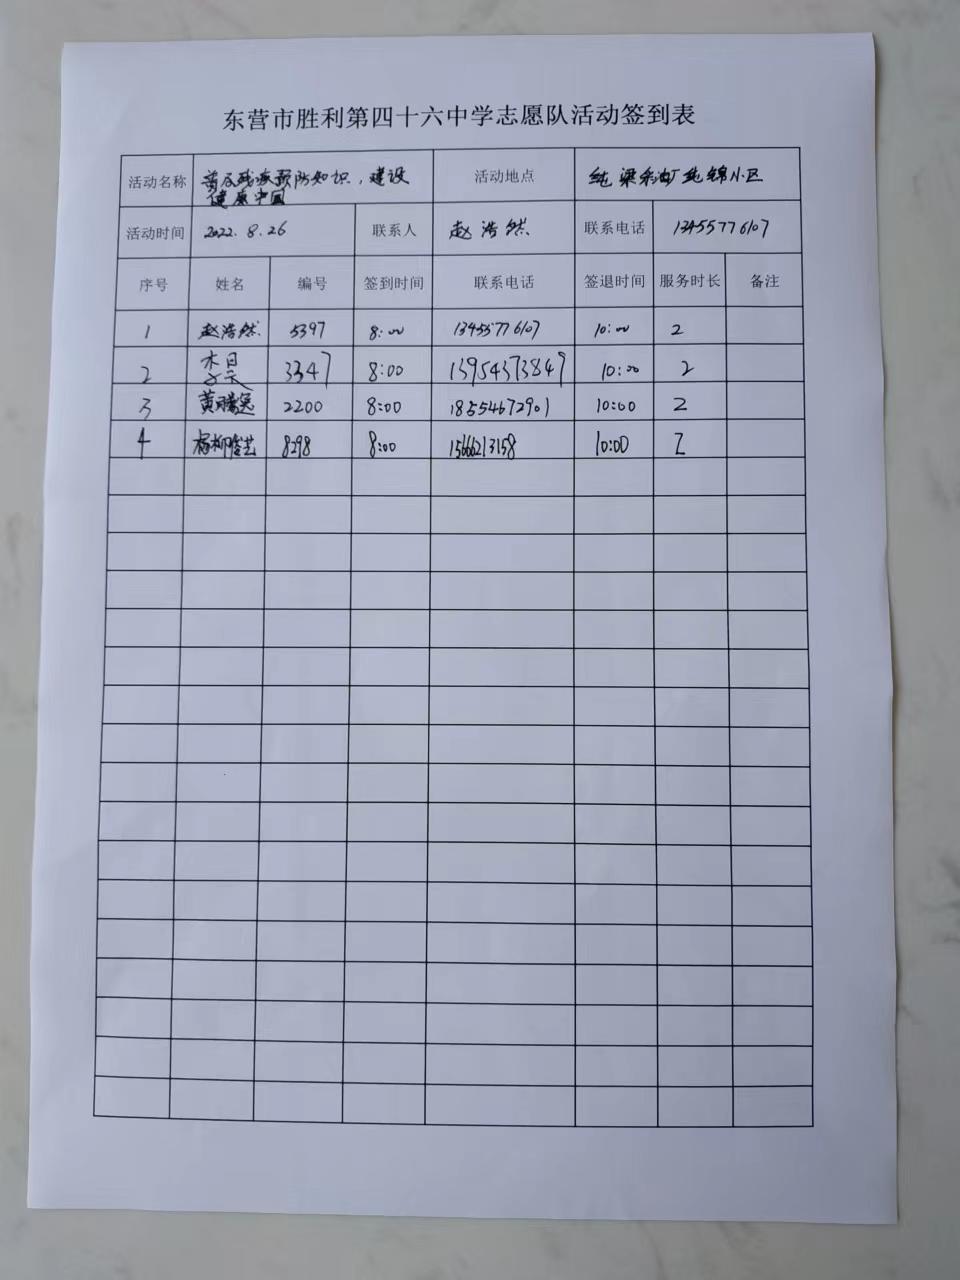 东营市胜利第四十六中学志愿队活动签到表
活动名称 普及残疾预防知识，建设 活动地点 纯梁采油厂纯锦小区
健康中国
活动时间 2022.8.26 联系人 赵浩然 联系电话 13455776107
序号 姓名 编号 签到时间 联系电话 签退时间 服务时长 备注
1 赵浩然 5397 8:00 13455776107 10:00 2
2 3347 8:00 13954373849 10:00 2
3 黄 2200 8:00 18554672901 10:00 2
4 杨柳 8298 8:00 15666213158 10:00 2